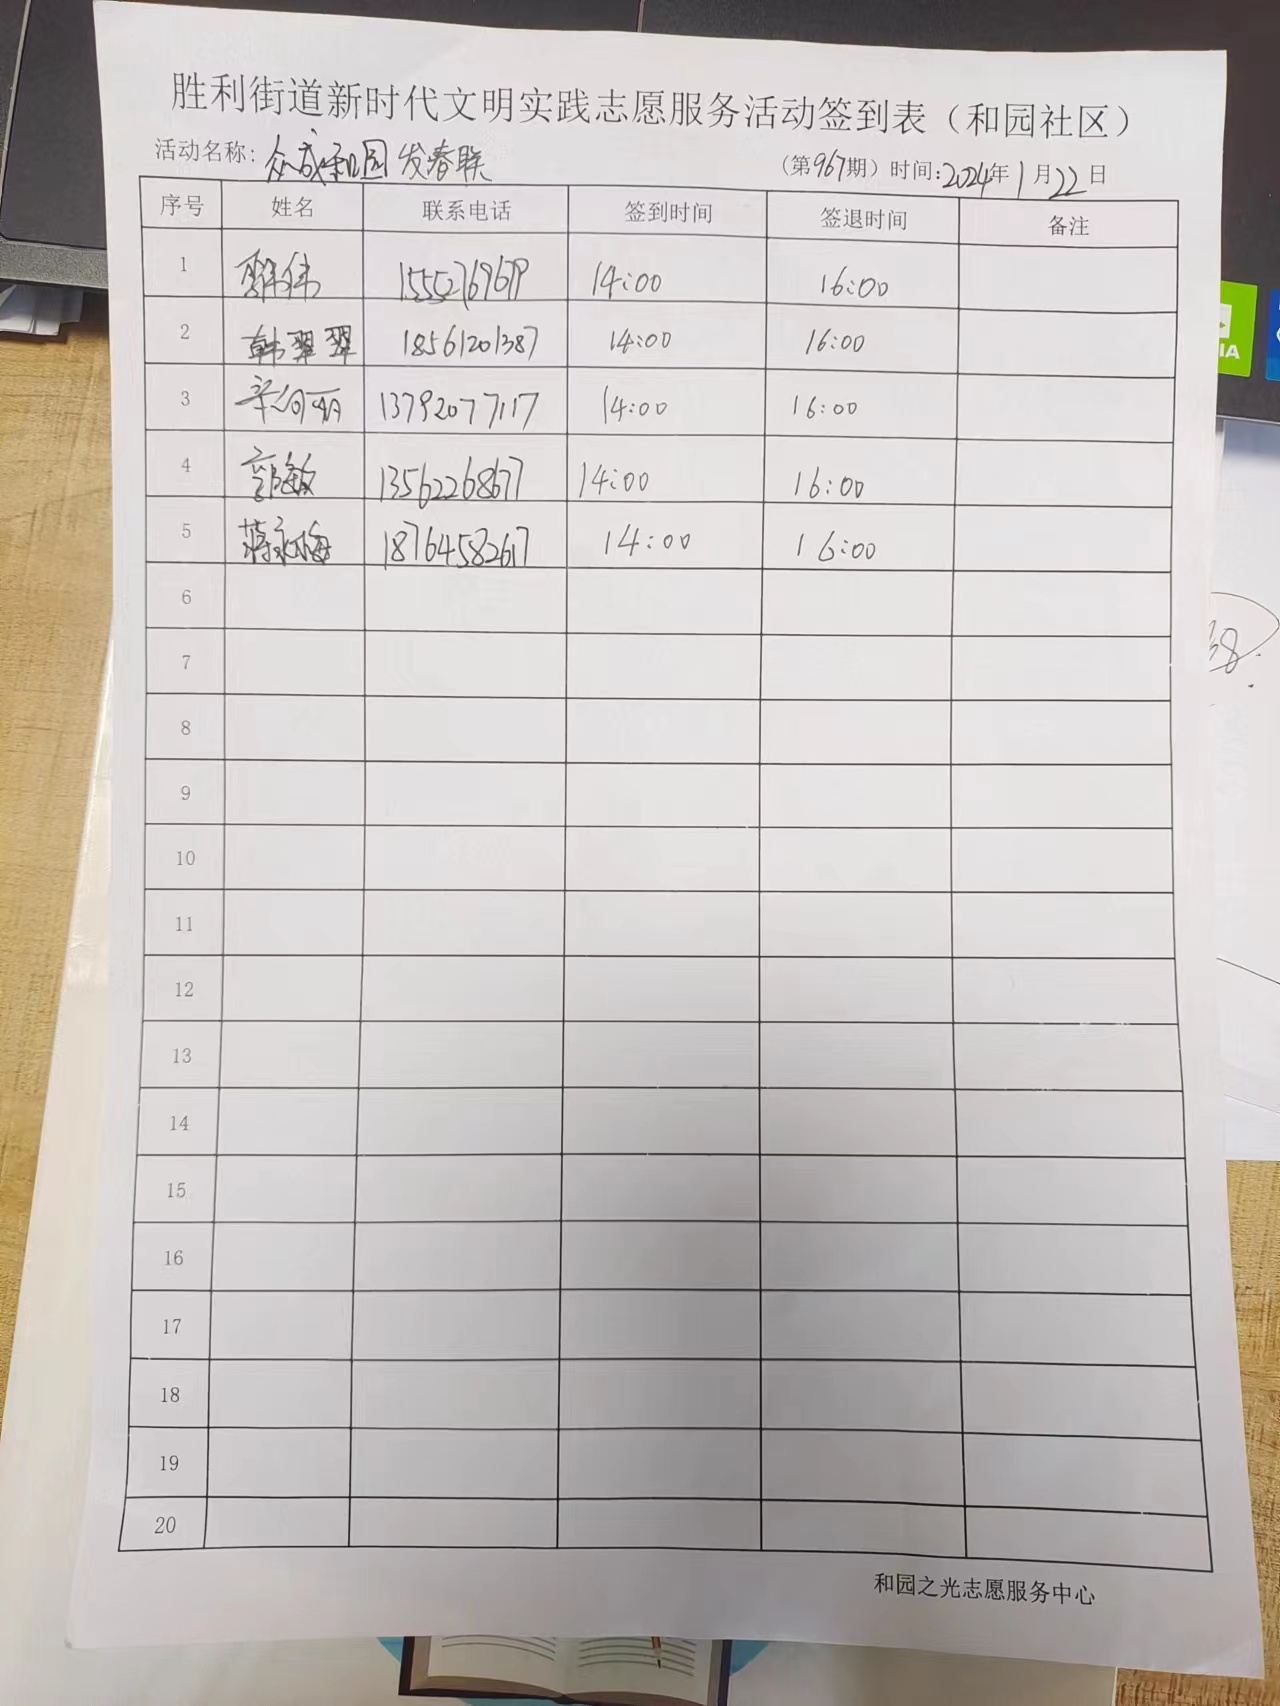 胜利街道新时代文明实践志愿服务活动签到表（和园社区）
活动名称：众成和园发春联 （第967期）时间：2024年1月22日
序号 姓名 联系电话 签到时间 签退时间 备注
1 伟 14:00 16:00
2 韩翠翠 18561201387 14:00 16:00
3 13792077117 14:00 16:00
4 郭敏 13562268677 14:00 16:00
5 蒋永梅 18764582617 14:00 16:00
6
7
8
9
10
11
12
13
14
15
16
17
18
19
20
和园之光志愿服务中心